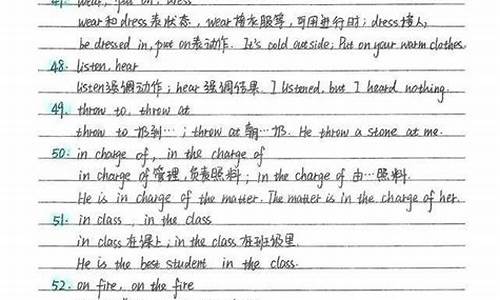 47. wear, put on, dress
wear和dress表状态，wear接衣服等，可用进行时；dress接人，
be dressed in, put on表动作. It's cold outside; Put on your warm clothes.
48. listen, hear
listen强调动作；hear强调结果. I listened, but I heard nothing.
49. throw to, throw at
throw to 扔到…；throw at 朝…扔. He throw a stone at me.
50. in charge of, in the charge of
in charge of 管理,负责照料；in the charge of 由…照料.
He is in charge of the matter. The matter is in the charge of her.
51. in class, in the class
in class 在课上；in the class 在班级里.
He is the best student in the class.
52. on fire, on the fire